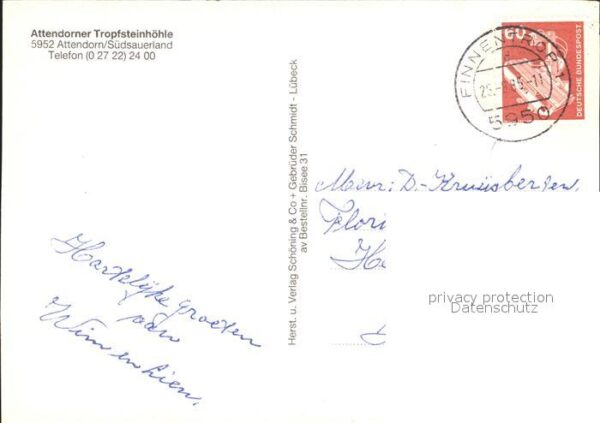 Attendorner Tropfsteinhöhle
5952 Attendorn/Südsauerland
Telefon (0 27 22) 24 00
60
DEUTSCHE BUNDESPOST
FINNENTROP 1
5950
Herst. u. Verlag Schöning & Co + Gebrüder Schmidt - Lübeck
av Bestellnr. Bisee 31
Hartelijke groeten
van
Wim en Lien.
Flori
privacy protection
Datenschutz